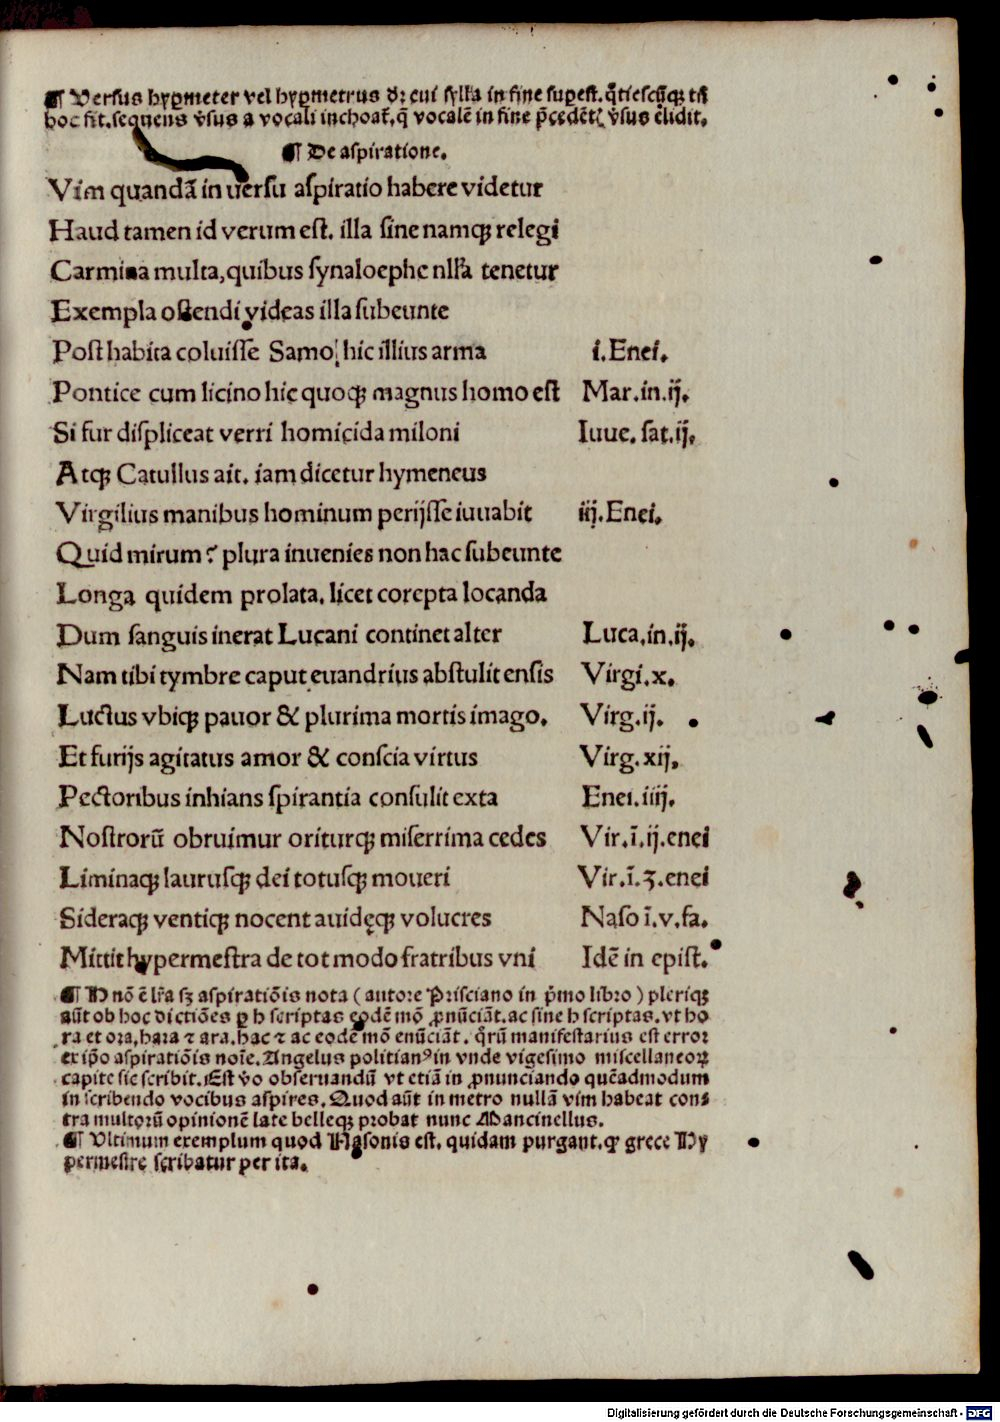 ¶ Versus hyp̱meter vel hyp̱metrus dr cui sylľa in fine suꝑest. q̃tiescũqꝫ tñ
hoc fit. sequens v̑sus a vocali inchoat᷑, q̃ vocalẽ in fine p̃cedẽt v̑sus elidit.
¶ De aspiratione.
Vim quandã in uersu aspiratio habere videtur
Haud tamen id verum est. illa sine namqꝫ relegi
Carmina multa, quibus synaloephe nlľa tenetur
Exempla ostendi videas illa subeunte
Post habita coluisse Samo, hic illius arma i. Enei.
Pontice cum licino hic quoqꝫ magnus homo est Mar. in. ij.
Si fur displiceat verri homicida miloni Iuue. sat. ij.
Atqꝫ Catullus ait. iam dicetur hymeneus
Virgilius manibus hominum perijsse iuuabit iij. Enei.
Quid mirum? plura inuenies non hac subeunte
Longa quidem prolata. licet corepta locanda
Dum sanguis inerat Lucani continet alter Luca. in. ij.
Nam tibi tymbre caput euandrius abstulit ensis Virgi. x.
Luctus vbiqꝫ pauor & plurima mortis imago. Virg. ij.
Et furijs agitatus amor & conscia virtus Virg. xij.
Pectoribus inhians spirantia consulit exta Enei. iiij.
Nostrorũ obruimur oriturqꝫ miserrima cedes Vir. ĩ. ij. enei
Liminaqꝫ laurusqꝫ dei totusqꝫ moueri Vir. ĩ. 3. enei
Sideraqꝫ ventiqꝫ nocent auidęqꝫ volucres Naso ĩ. v. fa.
Mittit hypermestra de tot modo fratribus vni Idẽ in epist.
¶ H nõ ẽ lr̃a sꝫ aspiratiõis nota (autore Prisciano in p̃mo libro) pleriqꝫ
aũt ob hoc dictiões ꝑ h scriptas eodẽ mõ ꝓnũciãt. ac sine h scriptas. vt ho
ra et ora, hara ⁊ ara. hac ⁊ ac eodẽ mõ enũciãt. q̃rũ manifestarius est error
ex ip̃o aspiratiõis noĩe. Angelus politianꝰ in vnde vigesimo miscellaneoꝝ
capite sic scribit. Est v̑o obseruandũ vt etiã in ꝓnunciando quẽadmodum
in scribendo vocibus aspires. Quod aũt in metro nullã vim habeat con⸗
tra multorũ opinionẽ late belleqꝫ probat nunc Mancinellus.
¶ Vltimum exemplum quod Nasonis est. quidam purgant. qꝫ grece Hy
permestre scribatur per ita.
Digitalisierung gefördert durch die Deutsche Forschungsgemeinschaft - DFG